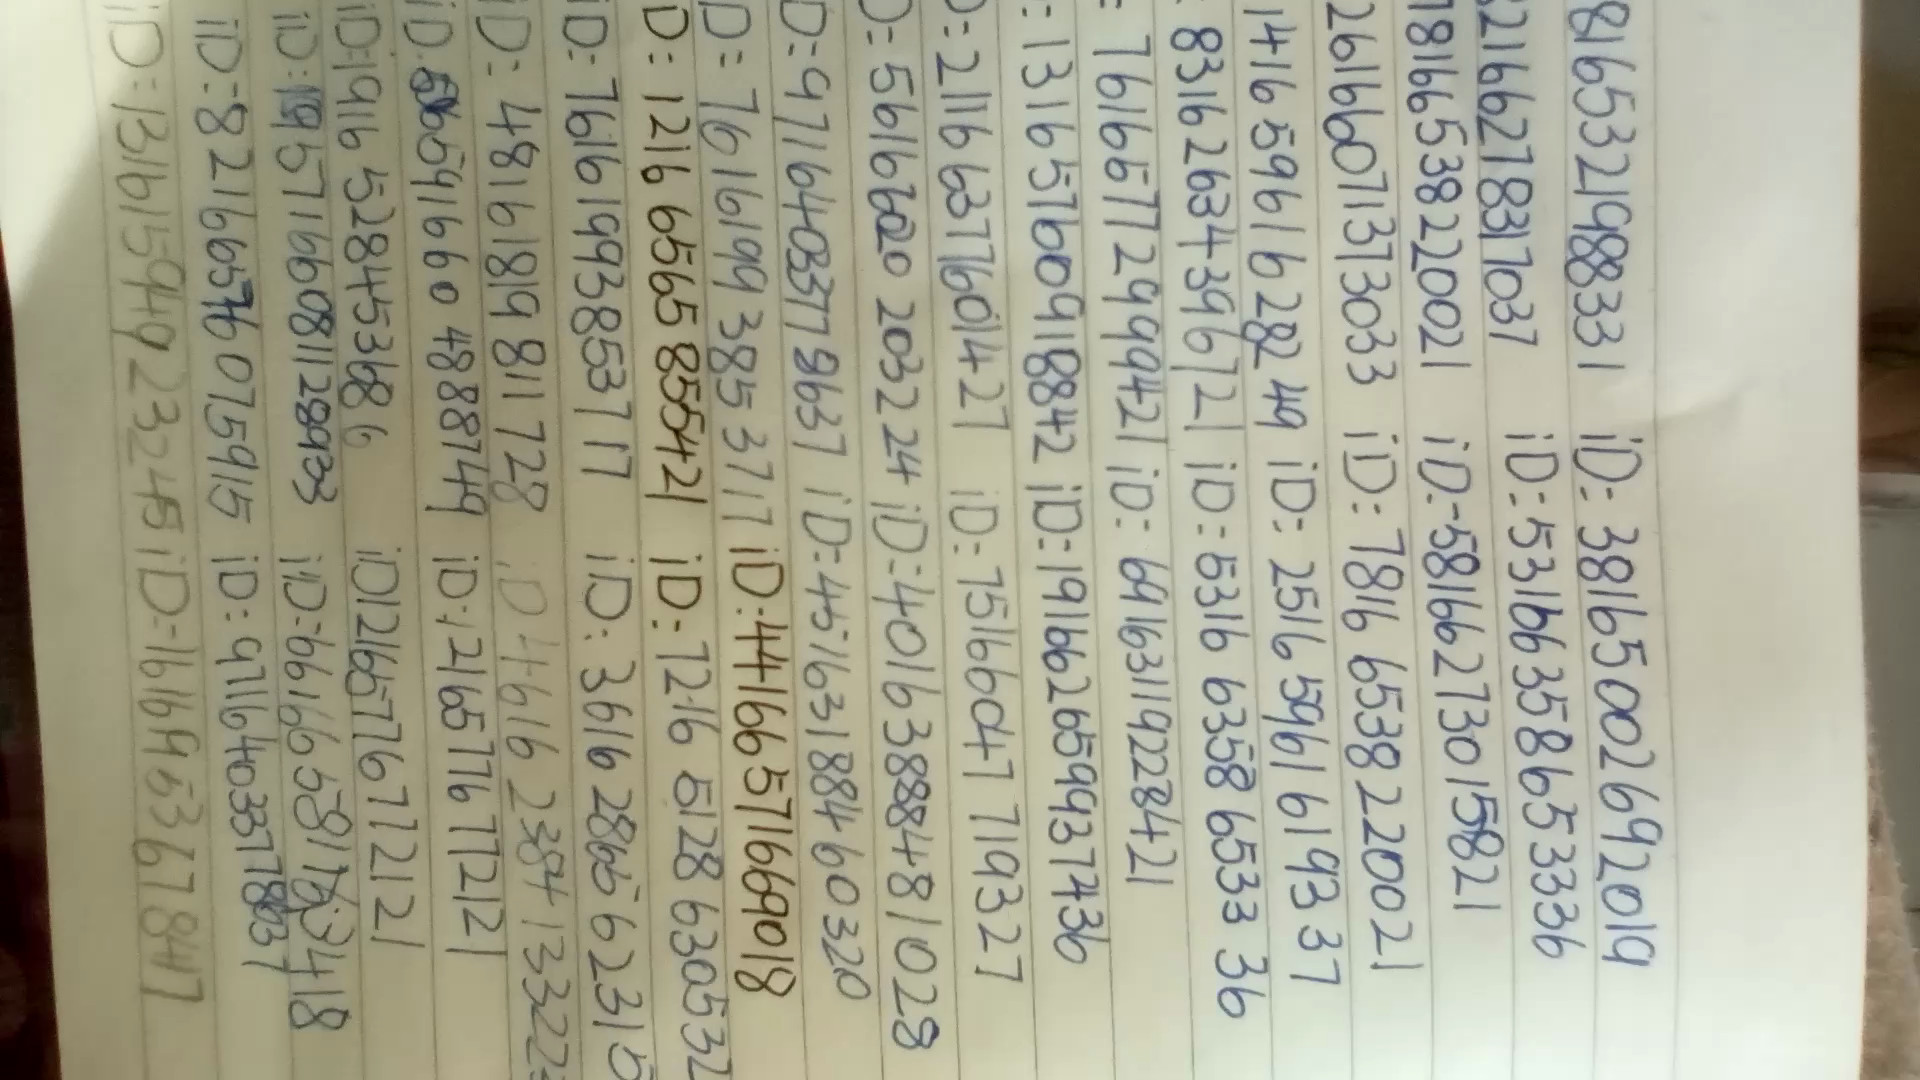 816532198831 iD: 3816500269 2019
2166278317037 iD: 5316635865 3336
78166538220021 iD-58166273015821
2616607137 3033 iD: 7816 6538 220021
1416 5961 6 282 49 iD: 2516 5961 6193 37
: 8316 2634 39672 1 iD: 5316 6358 6533 36
= 76166577299942 1 iD: 6916311922842 1
: 13165760918842 iD: 19166265993 7436
D: 2116637760 1427 iD: 7516604771 9327
D= 5616620 2032 24 iD: 4016388848 1028
D=97164033779637 iD: 45163188460320
D= 7616199 3853717 iD: 44166571669018
D: 1216 6565 855421 iD: 7216 5128 630532
iD: 7616199385371 7 iD: 3616 2865 62315
iD: 4816181981 1728 iD 4616 2384 13322
iD: 5665 91660 4888749 iD: 2165776 77212 1
iD: 1916 528453686 iD1216577677212 1
iD: 19571660811289 33 iD: 661665817 63418
iD: 8216657607 5915 iD: 9716403377 8637
iD: 1316159492 3245 iD: 1616963678 47